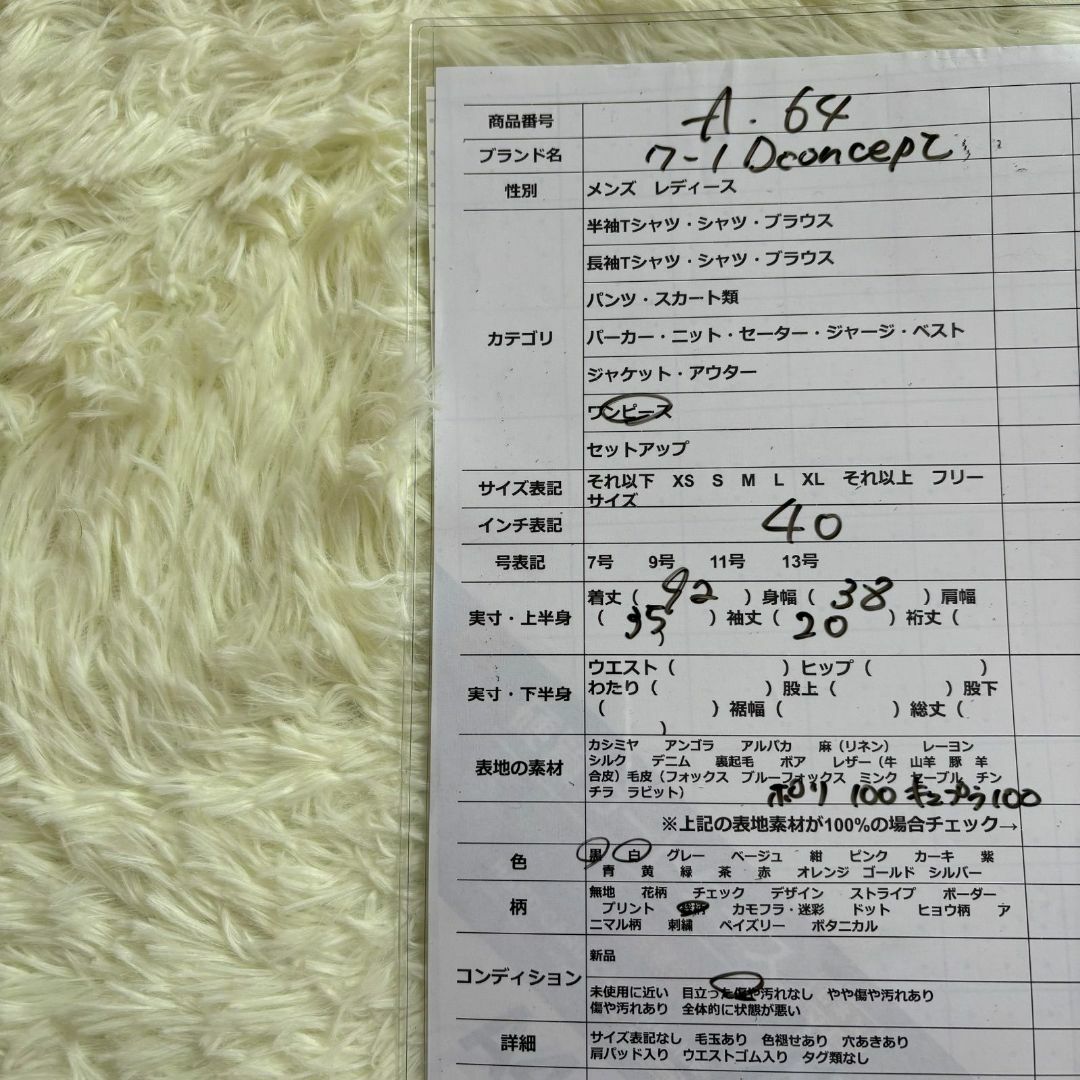 商品番号 A. 64
ブランド名 7-1 Dconcept
性別 メンズ レディース
カテゴリ
半袖Tシャツ・シャツ・ブラウス
長袖Tシャツ・シャツ・ブラウス
パンツ・スカート類
パーカー・ニット・セーター・ジャージ・ベスト
ジャケット・アウター
ワンピース
セットアップ
サイズ表記 それ以下 XS S M L XL それ以上 フリー
サイズ
インチ表記 40
号表記 7号 9号 11号 13号
実寸・上半身
着丈（ 92 ）身幅（ 38 ）肩幅
（ 35 ）袖丈（ 20 ）裄丈（
）
実寸・下半身
ウエスト（ ）ヒップ（ ）
わたり（ ）股上（ ）股下
（ ）裾幅（ ）総丈（
）
表地の素材
カシミヤ アンゴラ アルパカ 麻（リネン） レーヨン
シルク デニム 裏起毛 ボア レザー（牛 山羊 豚 羊
合皮）毛皮（フォックス ブルーフォックス ミンク セーブル チン
チラ ラビット） ポリ 100 キュプラ100
※上記の表地素材が100%の場合チェック→
色
黒 白 グレー ベージュ 紺 ピンク カーキ 紫
青 黄 緑 茶 赤 オレンジ ゴールド シルバー
柄
無地 花柄 チェック デザイン ストライプ ボーダー
プリント カモフラ・迷彩 ドット ヒョウ柄 ア
ニマル柄 刺繍 ペイズリー ボタニカル
コンディション
新品
未使用に近い 目立った傷や汚れなし やや傷や汚れあり
傷や汚れあり 全体的に状態が悪い
詳細
サイズ表記なし 毛玉あり 色褪せあり 穴あきあり
肩パッド入り ウエストゴム入り タグ類なし